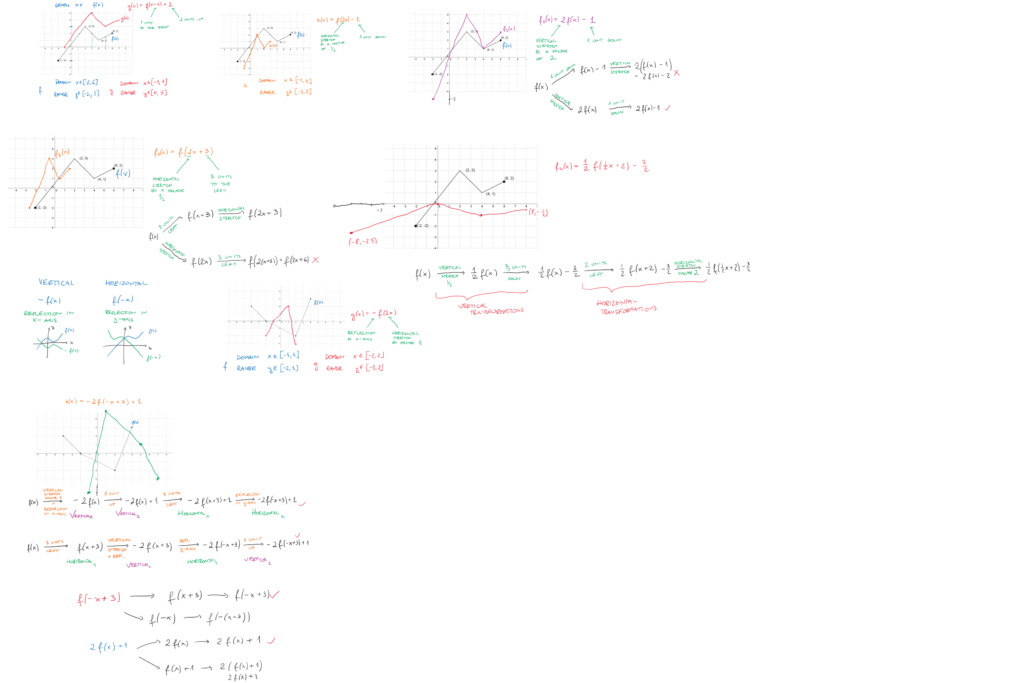 GRAPH OF f(x)
g(x) = f(x-1) + 2
1 UNIT TO THE RIGHT
2 UNITS UP
g(x)
f(x)
f
DOMAIN x∈[-2,6]
RANGE y∈[-2,3]
g
DOMAIN x∈[-1,7]
RANGE y∈[0,5]
h(x) = f(2x) - 1
HORIZONTAL STRETCH BY A FACTOR OF 1/2
1 UNIT DOWN
f(x)
h
DOMAIN x∈[-1,3]
RANGE y∈[-3,2]
f₂(x) = 2f(x) - 1
VERTICAL STRETCH BY A FACTOR OF 2
1 UNIT DOWN
f₂(x)
f(x)
f(x)
1 UNIT DOWN
f(x) - 1
VERTICAL STRETCH
2(f(x) - 1)
= 2f(x) - 2 ×
VERTICAL STRETCH
2f(x)
1 UNIT DOWN
2f(x) - 1 ✓
f₃(x)
(2, 3)
(4, 1)
(6, 2)
(-2, -2)
f(x)
f₃(x) = f(2x + 3)
HORIZONTAL STRETCH BY A FACTOR 1/2
3 UNITS TO THE LEFT
f(x)
3 UNITS LEFT
f(x+3)
HORIZONTAL STRETCH
f(2x + 3)
HORIZONTAL STRETCH
f(2x)
3 UNITS LEFT
f(2(x+3)) = f(2x+6) ×
(2, 3)
(6, 2)
(4, 1)
(-2, -2)
(-8, -2.5)
(8, -1/2)
f₄(x) = 1/2 f(1/2 x - 2) - 3/2
f(x)
VERTICAL STRETCH 1/2
1/2 f(x)
3/2 UNITS DOWN
1/2 f(x) - 3/2
2 UNITS LEFT
1/2 f(x+2) - 3/2
HORIZONTAL STRETCH FACTOR 2
1/2 f(1/2 x + 2) - 3/2
VERTICAL TRANSFORMATIONS
HORIZONTAL TRANSFORMATIONS
VERTICAL
HORIZONTAL
- f(x)
f(-x)
REFLECTION IN X-AXIS
REFLECTION IN Y-AXIS
f(x)
-f(x)
f(x)
f(-x)
f(x)
g(x) = - f(2x)
REFLECTION IN X-AXIS
HORIZONTAL STRETCH BY FACTOR 1/2
f
RANGE y∈[-2,3]
g
DOMAIN x∈[-2,2]
RANGE y∈[-3,2]
h(x) = -2f(-x+3) + 1
f(x)
f(x)
VERTICAL STRETCH FACTOR 2
+
REFLECTION IN X-AXIS
-2f(x)
1 UNIT UP
-2f(x) + 1
3 UNITS LEFT
-2f(x+3) + 1
REFLECTION IN Y-AXIS
-2f(-x+3) + 1 ✓
VERTICAL₁
VERTICAL₂
HORIZONTAL₁
HORIZONTAL₂
f(x)
3 UNITS LEFT
f(x+3)
VERTICAL STRETCH + REFL.
-2f(x+3)
REFL. Y-AXIS
-2f(-x+3)
1 UNIT UP
-2f(-x+3) + 1 ✓
HORIZONTAL₁
VERTICAL₁
HORIZONTAL₂
VERTICAL₂
f(-x+3)
f(x+3)
f(-x+3) ✓
f(-x)
f(-(x+3))
2f(x) + 1
2f(x)
2f(x) + 1 ✓
f(x) + 1
2(f(x) + 1)
2f(x) + 2